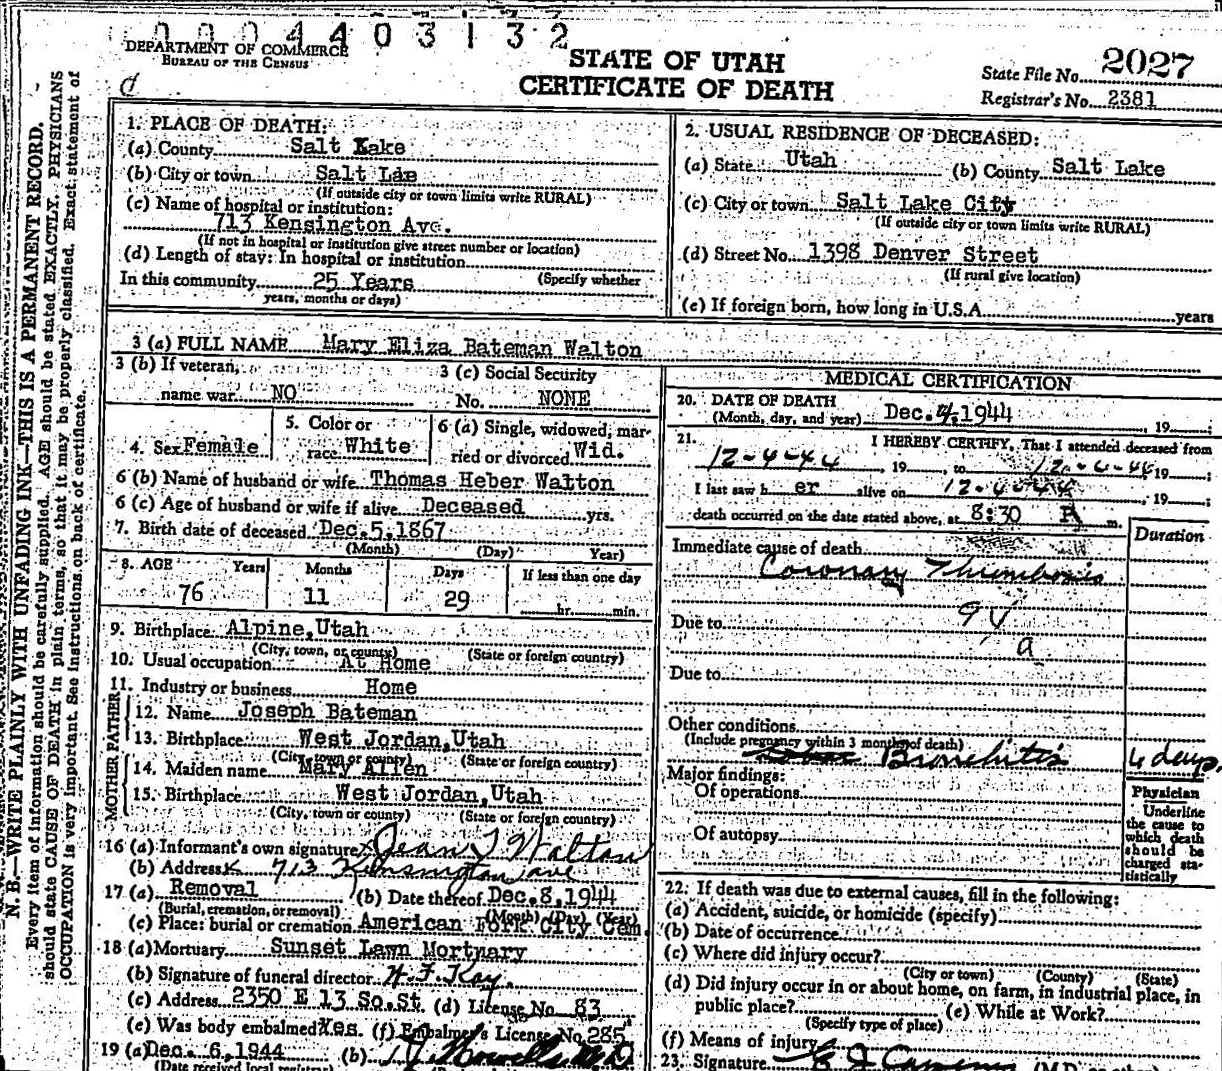 0004403132
DEPARTMENT OF COMMERCE
BUREAU OF THE CENSUS
STATE OF UTAH
CERTIFICATE OF DEATH
State File No. 2027
Registrar's No. 2381
N. B.—WRITE PLAINLY WITH UNFADING INK—THIS IS A PERMANENT RECORD.
Every item of information should be carefully supplied. AGE should be stated EXACTLY. PHYSICIANS
should state CAUSE OF DEATH in plain terms, so that it may be properly classified. Exact statement of
OCCUPATION is very important. See instructions on back of certificate.
1. PLACE OF DEATH:
(a) County Salt Lake
(b) City or town Salt Lae
(If outside city or town limits write RURAL)
(c) Name of hospital or institution:
713 Kensington Ave.
(If not in hospital or institution give street number or location)
(d) Length of stay: In hospital or institution
In this community 25 Years (Specify whether
years, months or days)
2. USUAL RESIDENCE OF DECEASED:
(a) State Utah (b) County Salt Lake
(c) City or town Salt Lake City
(If outside city or town limits write RURAL)
(d) Street No. 1398 Denver Street
(If rural give location)
(e) If foreign born, how long in U.S.A. years
3 (a) FULL NAME Mary Eliza Bateman Walton
3 (b) If veteran,
name war NO
3 (c) Social Security
No. NONE
4. Sex Female
5. Color or
race White
6 (a) Single, widowed, mar-
ried or divorced Wid.
6 (b) Name of husband or wife Thomas Heber Walton
6 (c) Age of husband or wife if alive Deceased yrs.
7. Birth date of deceased Dec.5,1867
(Month) (Day) Year)
8. AGE Years Months Days If less than one day
76 11 29 hr. min.
9. Birthplace Alpine,Utah
(City, town, or county) (State or foreign country)
10. Usual occupation At Home
11. Industry or business Home
FATHER
12. Name Joseph Bateman
13. Birthplace West Jordan,Utah
(City, town or county) (State or foreign country)
MOTHER
14. Maiden name Mary Allen
15. Birthplace West Jordan,Utah
(City, town or county) (State or foreign country)
16 (a) Informant's own signature Jean T Walton
(b) Address 713 Kensington ave
17 (a) Removal (b) Date thereof Dec.8,1944
(Burial, cremation, or removal) (Month) (Day) (Year)
(c) Place: burial or cremation American Fork City Cem.
18 (a) Mortuary Sunset Lawn Mortuary
(b) Signature of funeral director
(c) Address 2350 E 13 So.St. (d) License No. 83
(e) Was body embalmed Yes. (f) Embalmer's License No. 285
19 (a) Dec. 6,1944 (b)
(Date received local
MEDICAL CERTIFICATION
20. DATE OF DEATH
(Month, day, and year) Dec.4,1944 , 19 ;
21. I HEREBY CERTIFY, That I attended deceased from
12-4-44 , 19 , to 12-4-44 19 ;
I last saw h er alive on 12-4-44 , 19 ;
death occurred on the date stated above, at 8:30 P m.
Duration
Immediate cause of death
Coronary Thrombosis
94
Due to
a
Due to
Other conditions
(Include pregnancy within 3 months of death)
Bronchitis 4 days
Major findings:
Of operations
Of autopsy
Physician
Underline
the cause to
which death
should be
charged sta-
tistically
22. If death was due to external causes, fill in the following:
(a) Accident, suicide, or homicide (specify)
(b) Date of occurrence
(c) Where did injury occur?
(City or town) (County) (State)
(d) Did injury occur in or about home, on farm, in industrial place, in
public place? (e) While at Work?
(Specify type of place)
(f) Means of injury
23. Signature